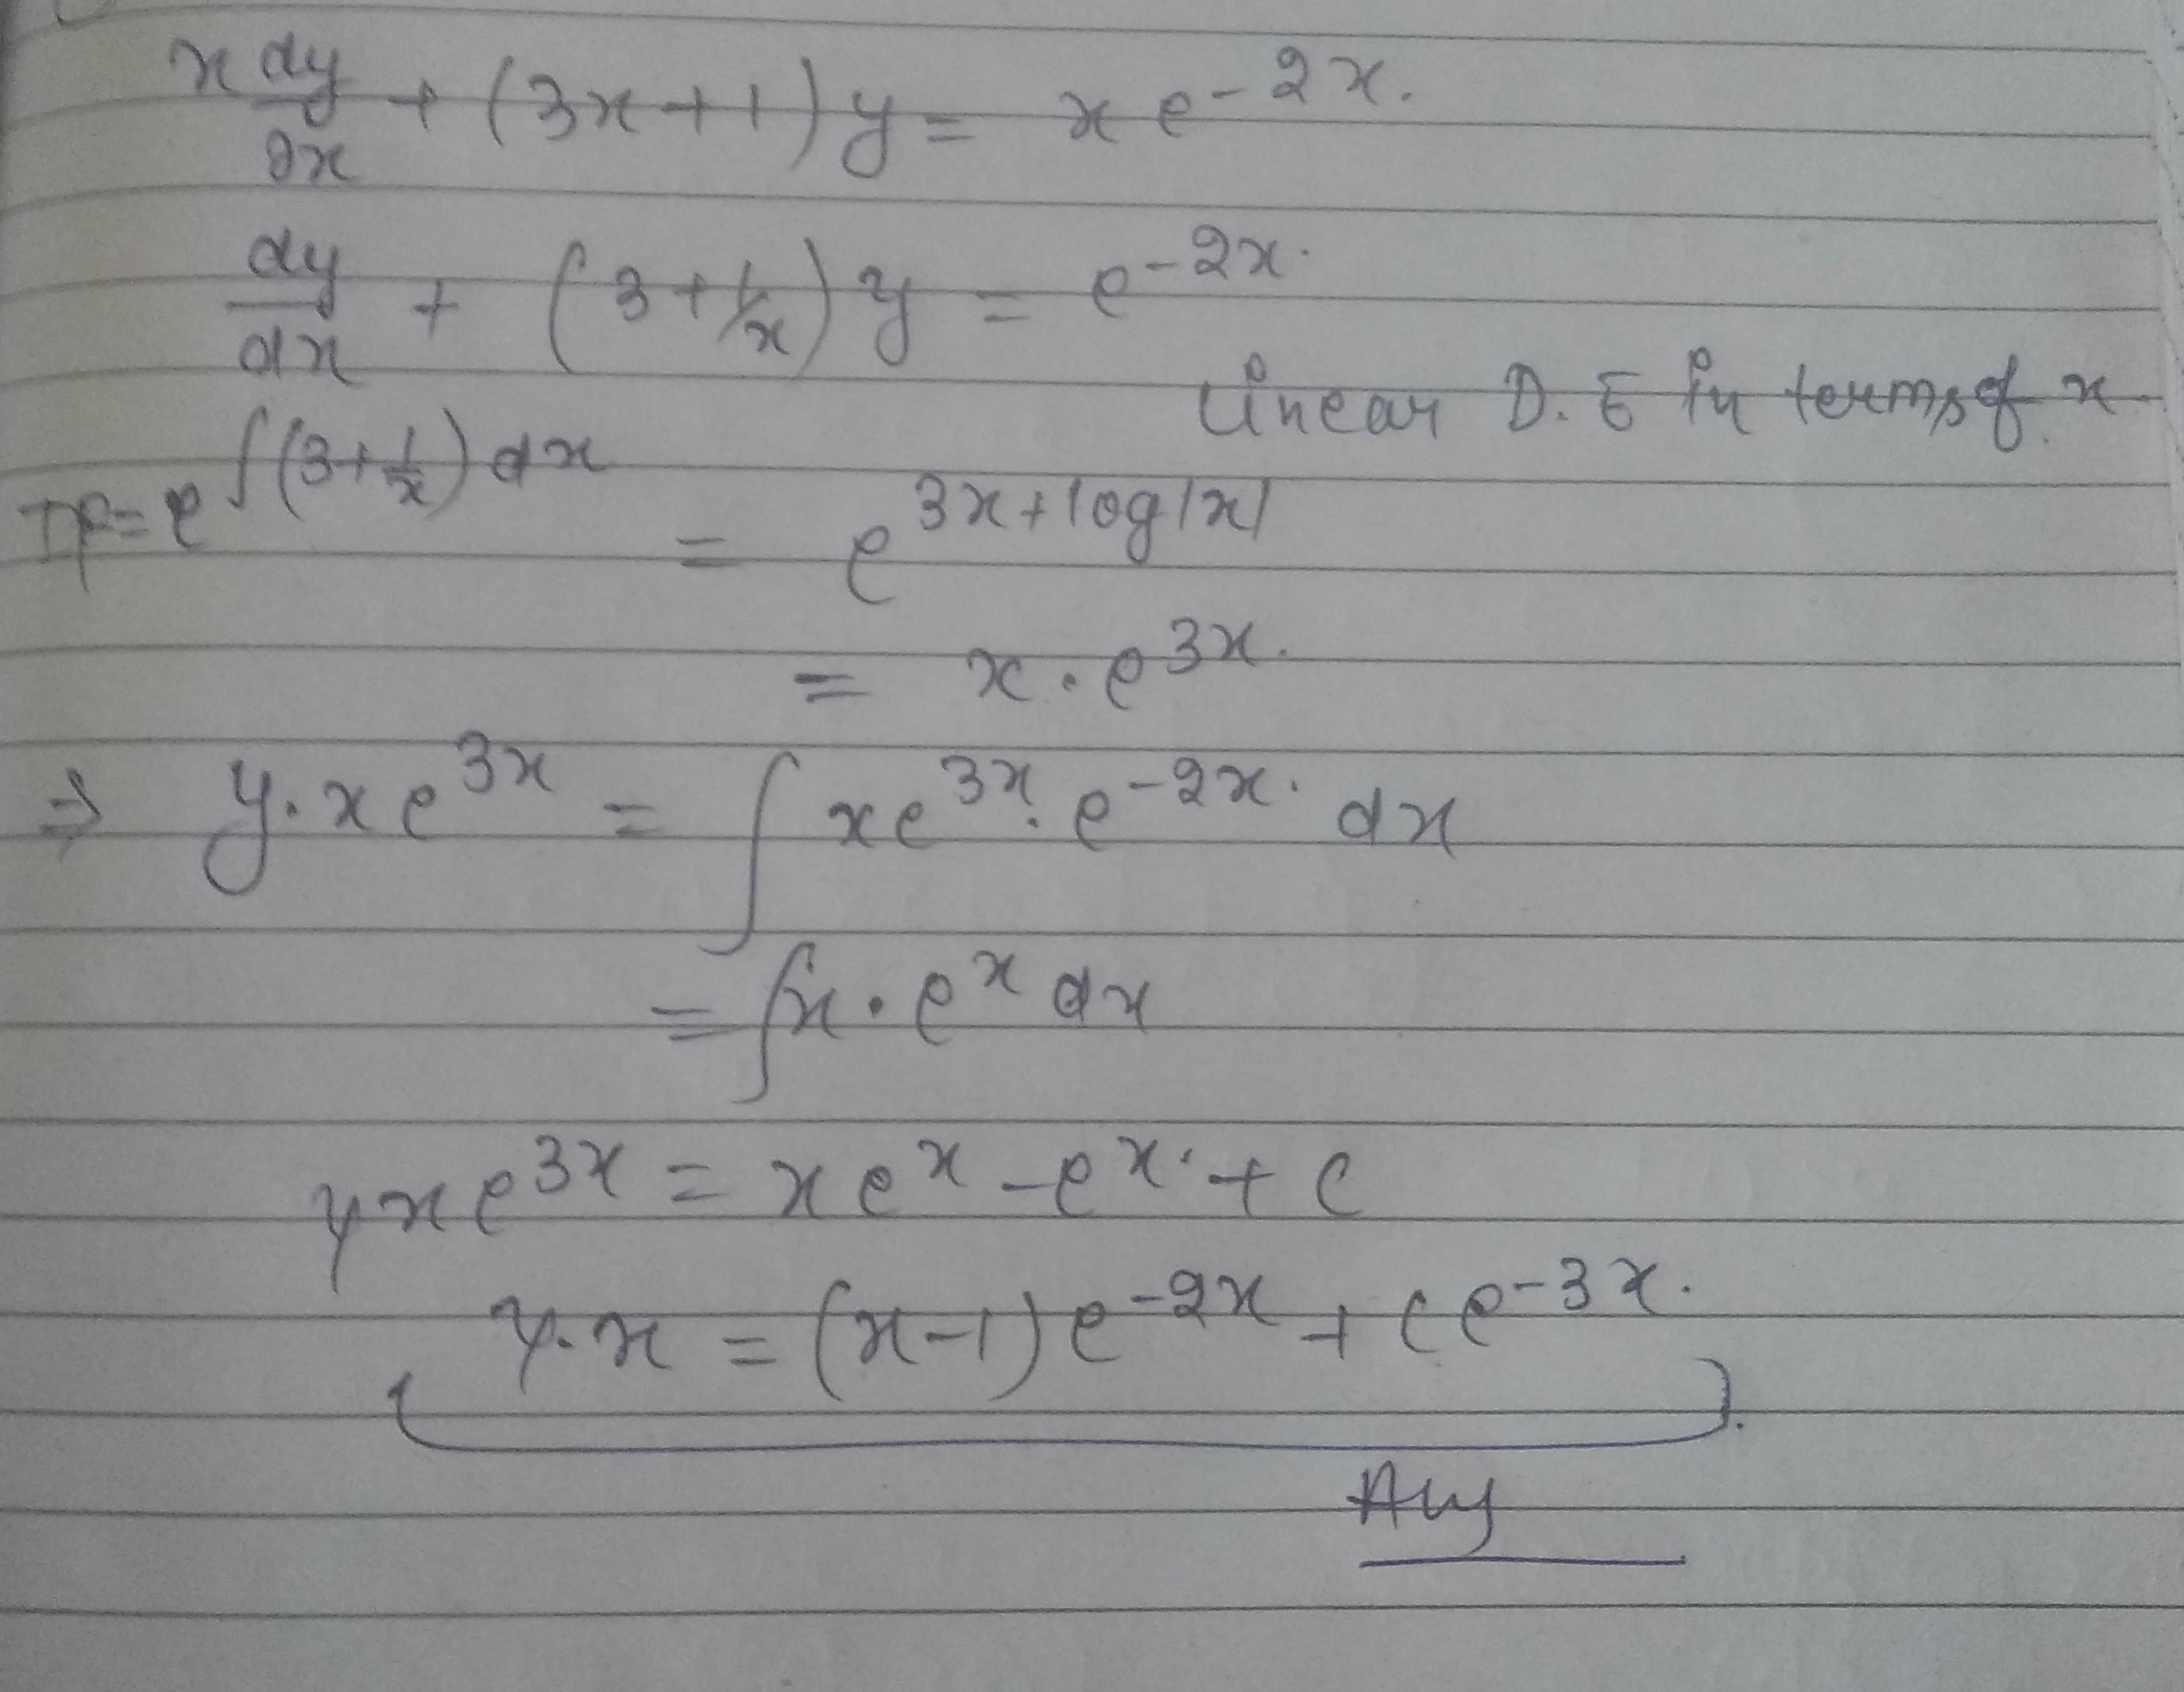 x dy/dx + (3x+1)y = x e^-2x.
dy/dx + (3+1/x)y = e^-2x.
Linear D.E in terms of x
IF = e^∫(3+1/x)dx = e^3x+log|x|
= x.e^3x.
⇒ y.x e^3x = ∫ xe^3x. e^-2x. dx
= ∫x.e^x dx
yxe^3x = xe^x - e^x. + c
y.x = (x-1)e^-2x + ce^-3x.
Ans